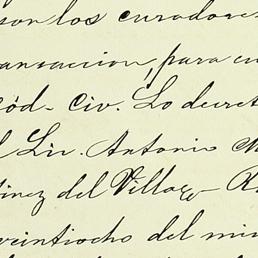 son los curadores
ansaccion, para cu
Cód. Civ. Lo decret
l Lic. Antonio M
tinez del Villar R
veintiocho del mi